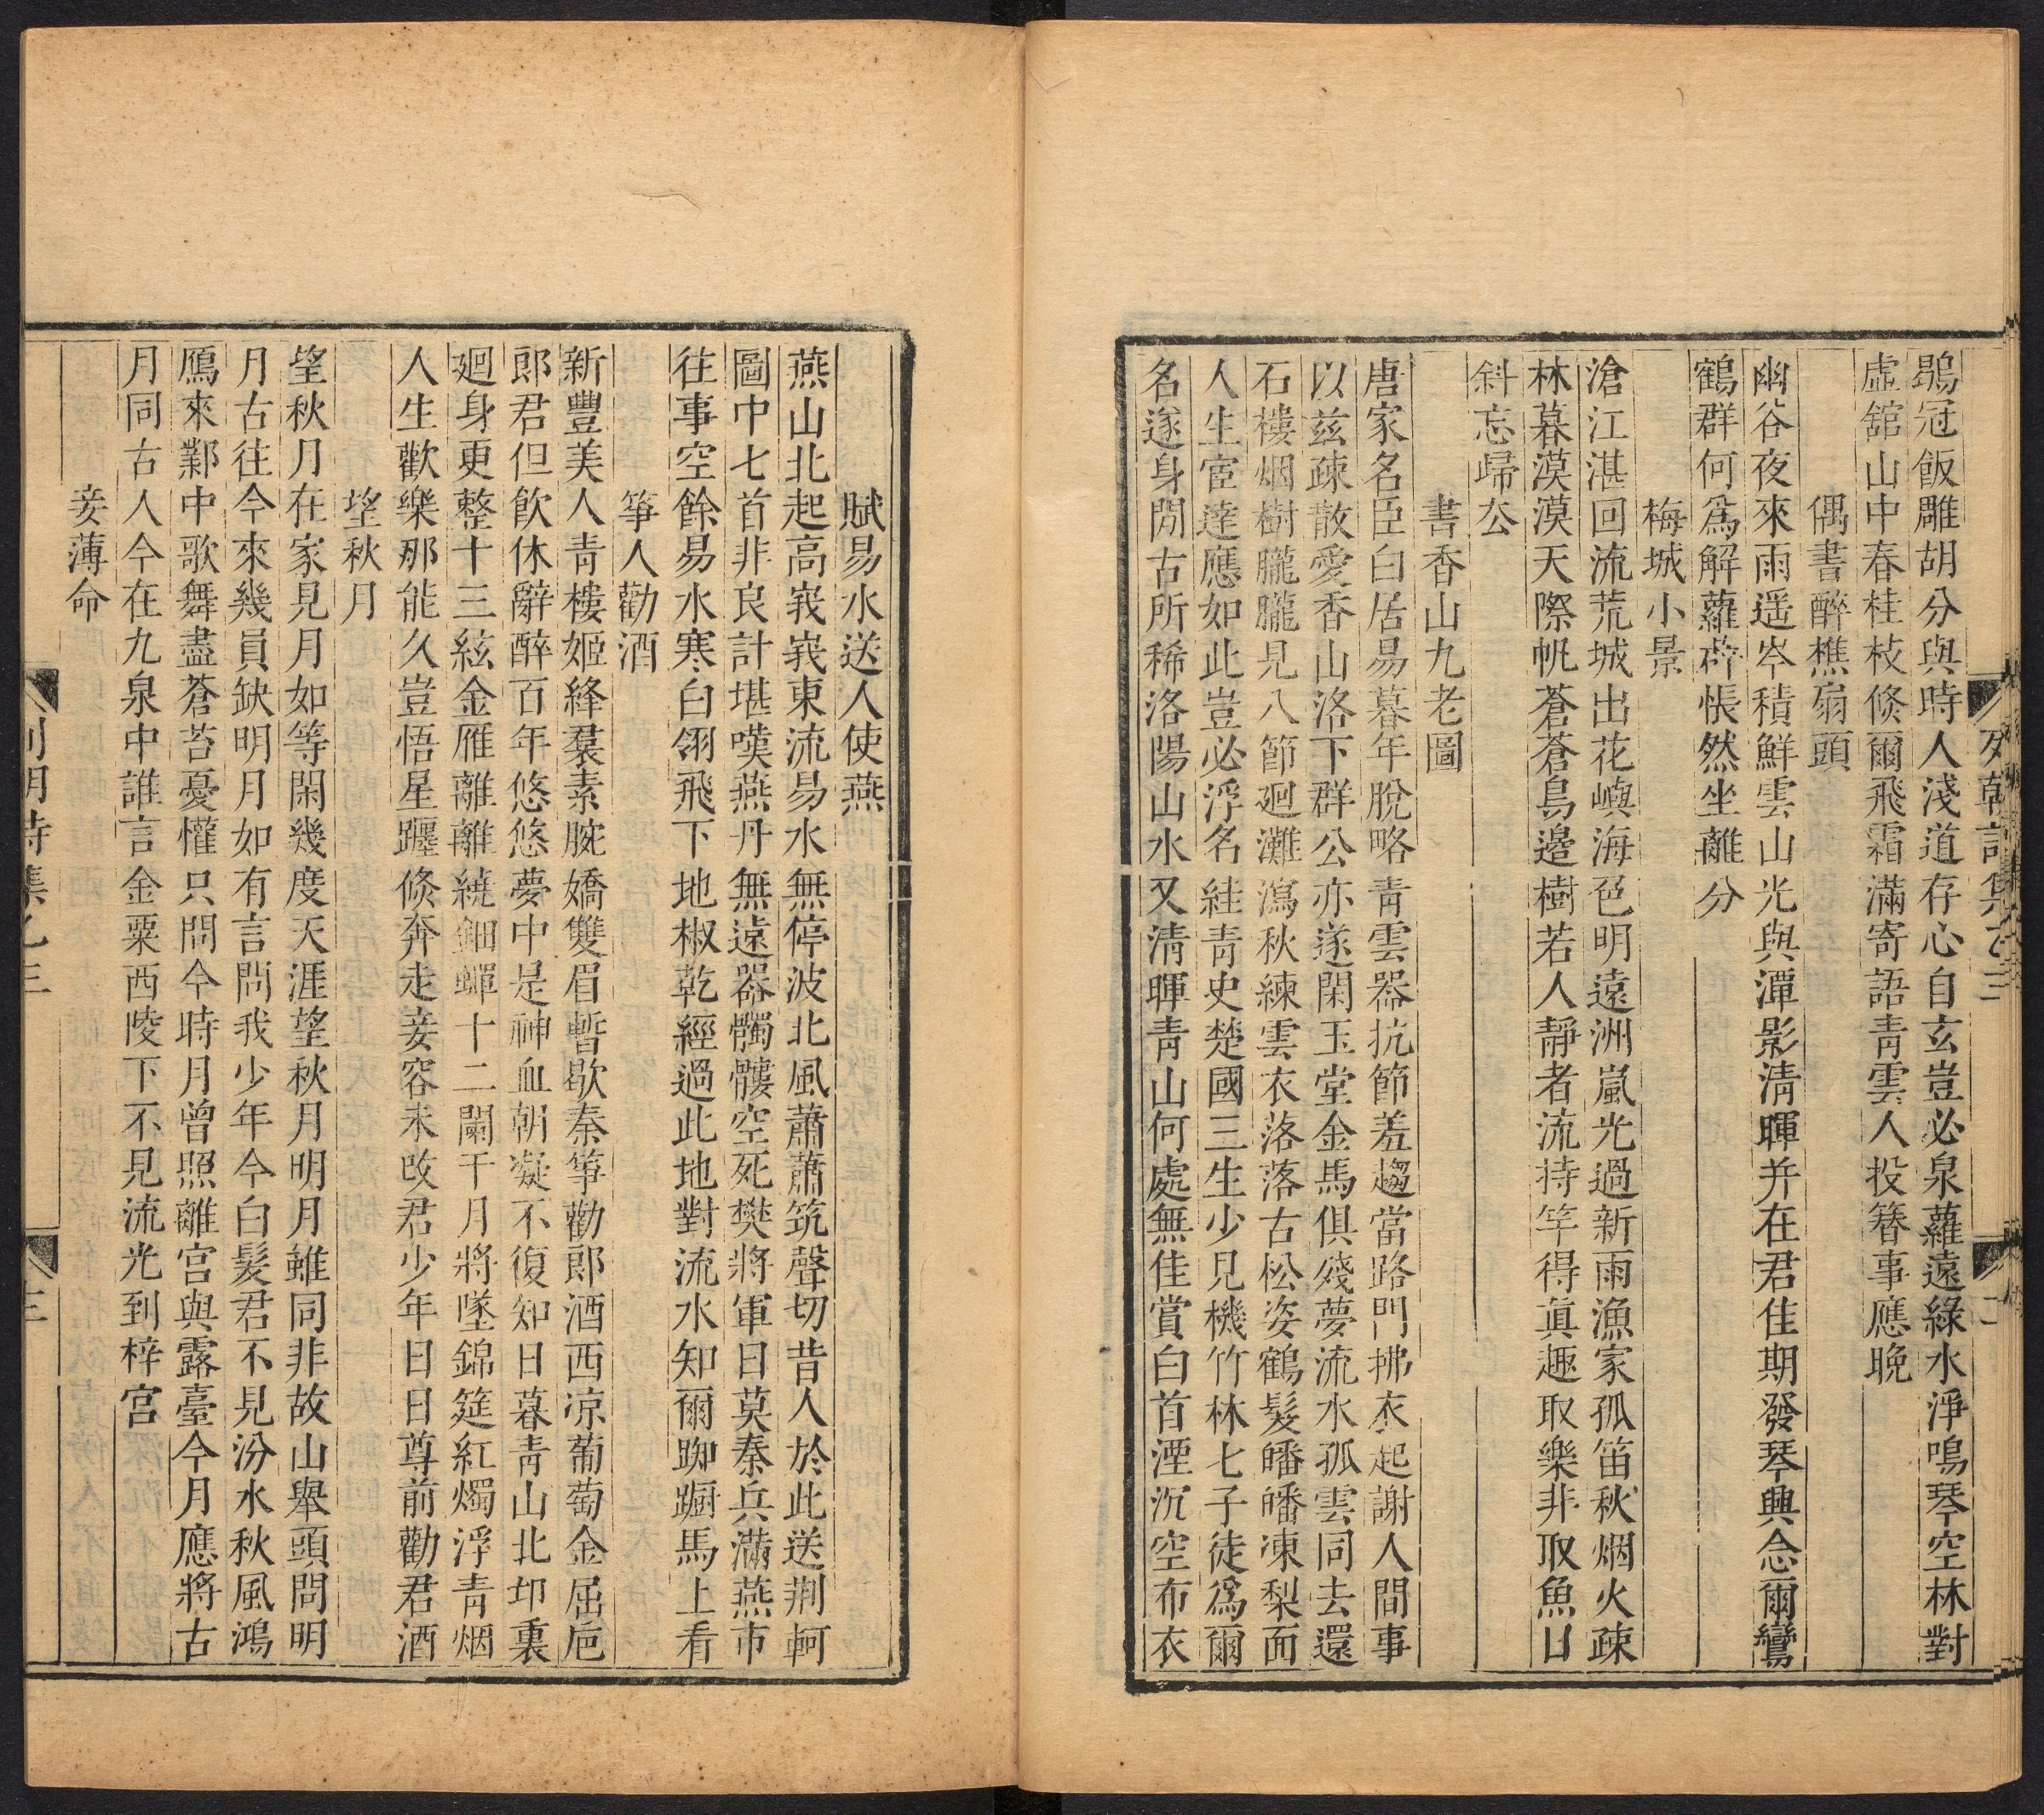 鶡冠飯雕胡分與時人淺道存心自玄豈必泉蘿遠綠水淨鳴琴空林對
虛舘山中春桂枝倐爾飛霜滿寄語青雲人投簪事應晚
偶書醉樵扇頭
幽谷夜來雨遥岑積鮮雲山光與潭影清暉并在君佳期發琴興念爾鸞
鶴群何爲解蘿帶悵然坐離分
梅城小景
滄江湛回流荒城出花嶼海色明遠洲嵐光過新雨漁家孤笛秋烟火疎
林暮漠漠天際帆蒼蒼島邊樹若人靜者流持竿得眞趣取樂非取魚日
斜忘歸去
書香山九老圖
唐家名臣白居易暮年脫略青雲器抗節羞趨當路門拂衣起謝人間事
以兹疎散愛香山洛下群公亦遂閑玉堂金馬俱殘夢流水孤雲同去還
石樓烟樹朧朧見八節廻灘瀉秋練雲衣落落古松姿鶴髮皤皤凍梨面
人生宦達應如此豈必浮名絓青史楚國三生少見機竹林七子徒爲爾
名遂身閒古所稀洛陽山水又清暉青山何處無佳賞白首湮沉空布衣
賦易水送人使燕
燕山北起高峩峩東流易水無停波北風蕭蕭筑聲切昔人於此送荆軻
圖中七首非良計堪嘆燕丹無遠器髑髏空死樊將軍日莫秦兵滿燕市
往事空餘易水寒白翎飛下地椒乾經過此地對流水知爾踟蹰馬上看
箏人勸酒
新豐美人青樓姬絳裠素腕嬌雙眉暫歇秦箏勸郎酒西凉葡萄金屈巵
郎君但飮休辭醉百年悠悠夢中是神血朝凝不復知日暮青山北邙裏
廻身更整十三絃金雁離離繞鈿蟬十二闌干月將墜錦筵紅燭浮青烟
人生歡樂那能久豈悟星躔倐奔走妾容未改君少年日日尊前勸君酒
望秋月
望秋月在家見月如等閑幾度天涯望秋月明月雖同非故山舉頭問明
月古往今來幾員缺明月如有言問我少年今白髮君不見汾水秋風鴻
鴈來鄴中歌舞盡蒼苔憂懽只問今時月曾照離宮與露臺今月應將古
月同古人今在九泉中誰言金粟西陵下不見流光到梓宮
妾薄命